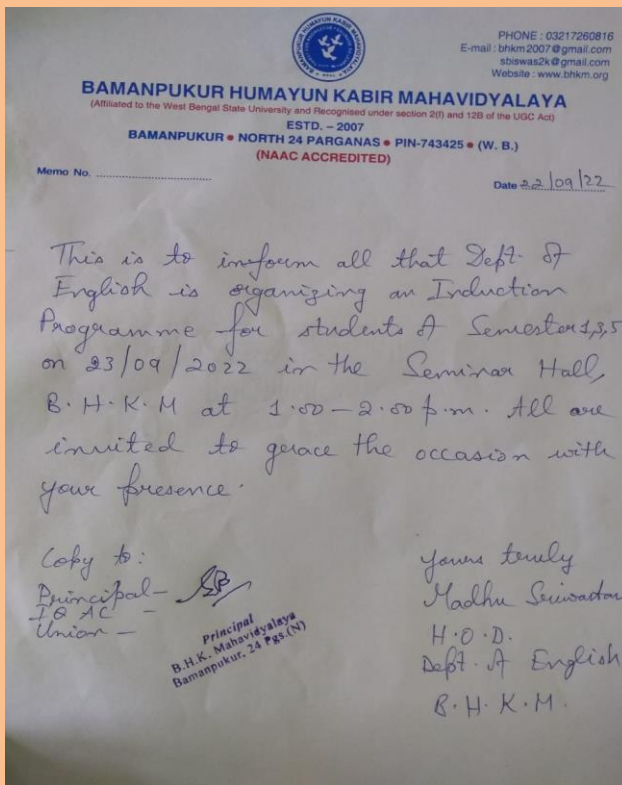 PHONE : 03217260816
E-mail : bhkm2007@gmail.com
sbiswas2k@gmail.com
Website : www.bhkm.org
BAMANPUKUR HUMAYUN KABIR MAHAVIDYALAYA
(Affiliated to the West Bengal State University and Recognised under section 2(f) and 12B of the UGC Act)
ESTD. – 2007
BAMANPUKUR • NORTH 24 PARGANAS • PIN-743425 • (W. B.)
(NAAC ACCREDITED)
Memo No.
Date 22/09/22
This is to inform all that Dept. of
English is organizing an Induction
Programme for students of Semester 1,3,5
on 23/09/2022 in the Seminar Hall,
B.H.K.M at 1.00 – 2.00 p.m. All are
invited to grace the occasion with
your presence.
Copy to:
Principal –
IQAC –
Union –
Principal
B.H.K. Mahavidyalaya
Bamanpukur, 24 Pgs.(N)
Yours truly
Madhu
H.O.D.
Dept. of English
B.H.K.M.